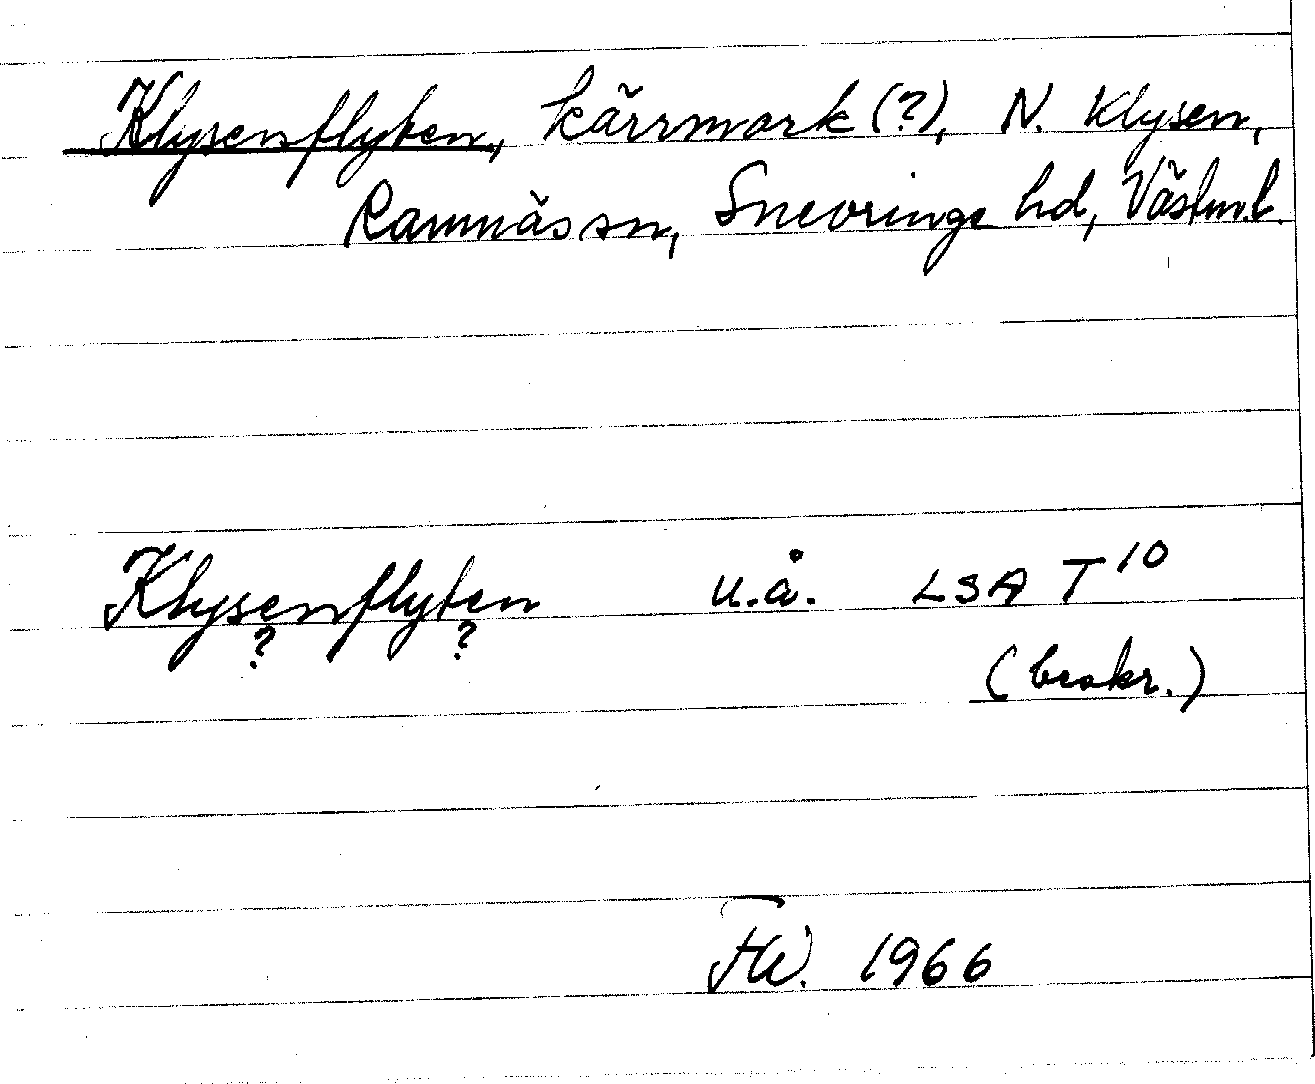 Klysenflyten, kärrmark (?), N. Klysen,
Ramnäs sn, Snevringe hd, Västml.
Klysenflyten u.å. LSA T10
? ?
(beskr.)
FW. 1966